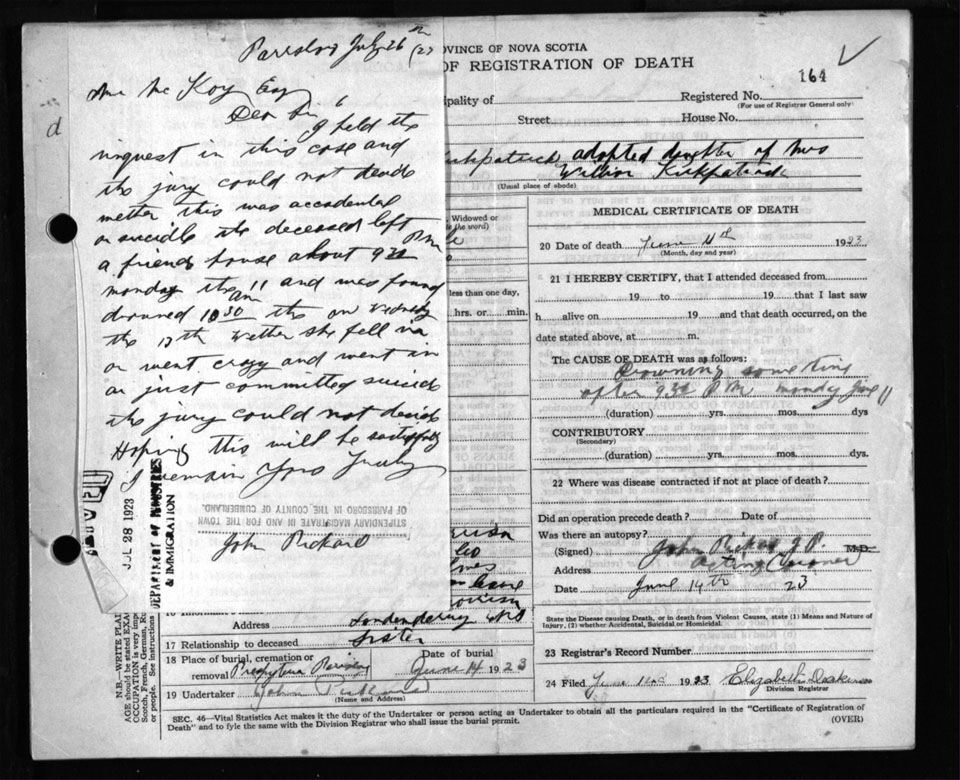 Parrsboro July 26th /23
Mc Koy Esq
Dear Sir
I held the
inquest in this case and
the jury could not deside
wether this was accidental
or suicide the deceased left
a friends house about 9 30 P.M
monday the 11 and was found
drowned 10 30 am the on Wednesday
the 13th wether she fell in
or went crazy and went in
or just committed suicide
the jury could not deside
Hoping this will be satisfactory
I remain Yors Truly
STIPENDIARY MAGISTRATE IN AND FOR THE TOWN
OF PARRSBORO IN THE COUNTY OF CUMBERLAND.
John Rickard
d
JUL 28 1923
DEPARTMENT OF INDUSTRIES
& IMMIGRATION
OVINCE OF NOVA SCOTIA
OF REGISTRATION OF DEATH
164
ipality of
Registered No.
(For use of Registrar General only)
Street
House No.
Kirkpatrick adopted daughter of Mrs
Kirkpatrick
(Usual place of abode)
Widowed or
the word)
less than one day,
hrs. or min.
MEDICAL CERTIFICATE OF DEATH
20 Date of death June 11th 1923
(Month, day and year)
21 I HEREBY CERTIFY, that I attended deceased from
19 to 19 that I last saw
h alive on 19 and that death occurred, on the
date stated above, at m.
The CAUSE OF DEATH was as follows:
Drowning some time
after 9 30 P.M. monday June 11
(duration) yrs. mos. dys
CONTRIBUTORY
(Secondary)
(duration) yrs. mos. dys
22 Where was disease contracted if not at place of death?
Did an operation precede death? Date of
Was there an autopsy?
(Signed) John Rickard J.P. M.D.
Address Acting Coroner
Date June 14th 23
State the Disease causing Death, or in death from Violent Causes, state (1) Means and Nature of
Injury, (2) whether Accidental, Suicidal or Homicidal.
23 Registrar's Record Number
24 Filed June 1923 Elizabeth
Division Registrar
Address Londonderry
17 Relationship to deceased Sister
18 Place of burial, cremation or
removal
Date of burial
June 14 1923
19 Undertaker John
(Name and Address)
N.B.—WRITE PLAI
AGE should be stated EXA
OCCUPATION is very impo
Scotch, French, German, Ru
or people. See instructions
SEC. 46—Vital Statistics Act makes it the duty of the Undertaker or person acting as Undertaker to obtain all the particulars required in the "Certificate of Registration of
Death" and to fyle the same with the Division Registrar who shall issue the burial permit.
(OVER)